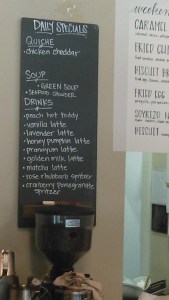 DAILY SPECIALS
QUICHE
• chicken cheddar
SOUP
• GREEN SOUP
• SEAFOOD CHOWDER
DRINKS
• peach hot toddy
• vanilla latte
• lavender latte
• honey pumpkin latte
• prannyum latte
• golden milk latte
• matcha latte
• rose rhubbarb spritzer
• cranberry pomegranate
spritzer
weeken
CARAMEL
FRIED CHI
BISCUIT BR
FRIED EGG
BISCUIT